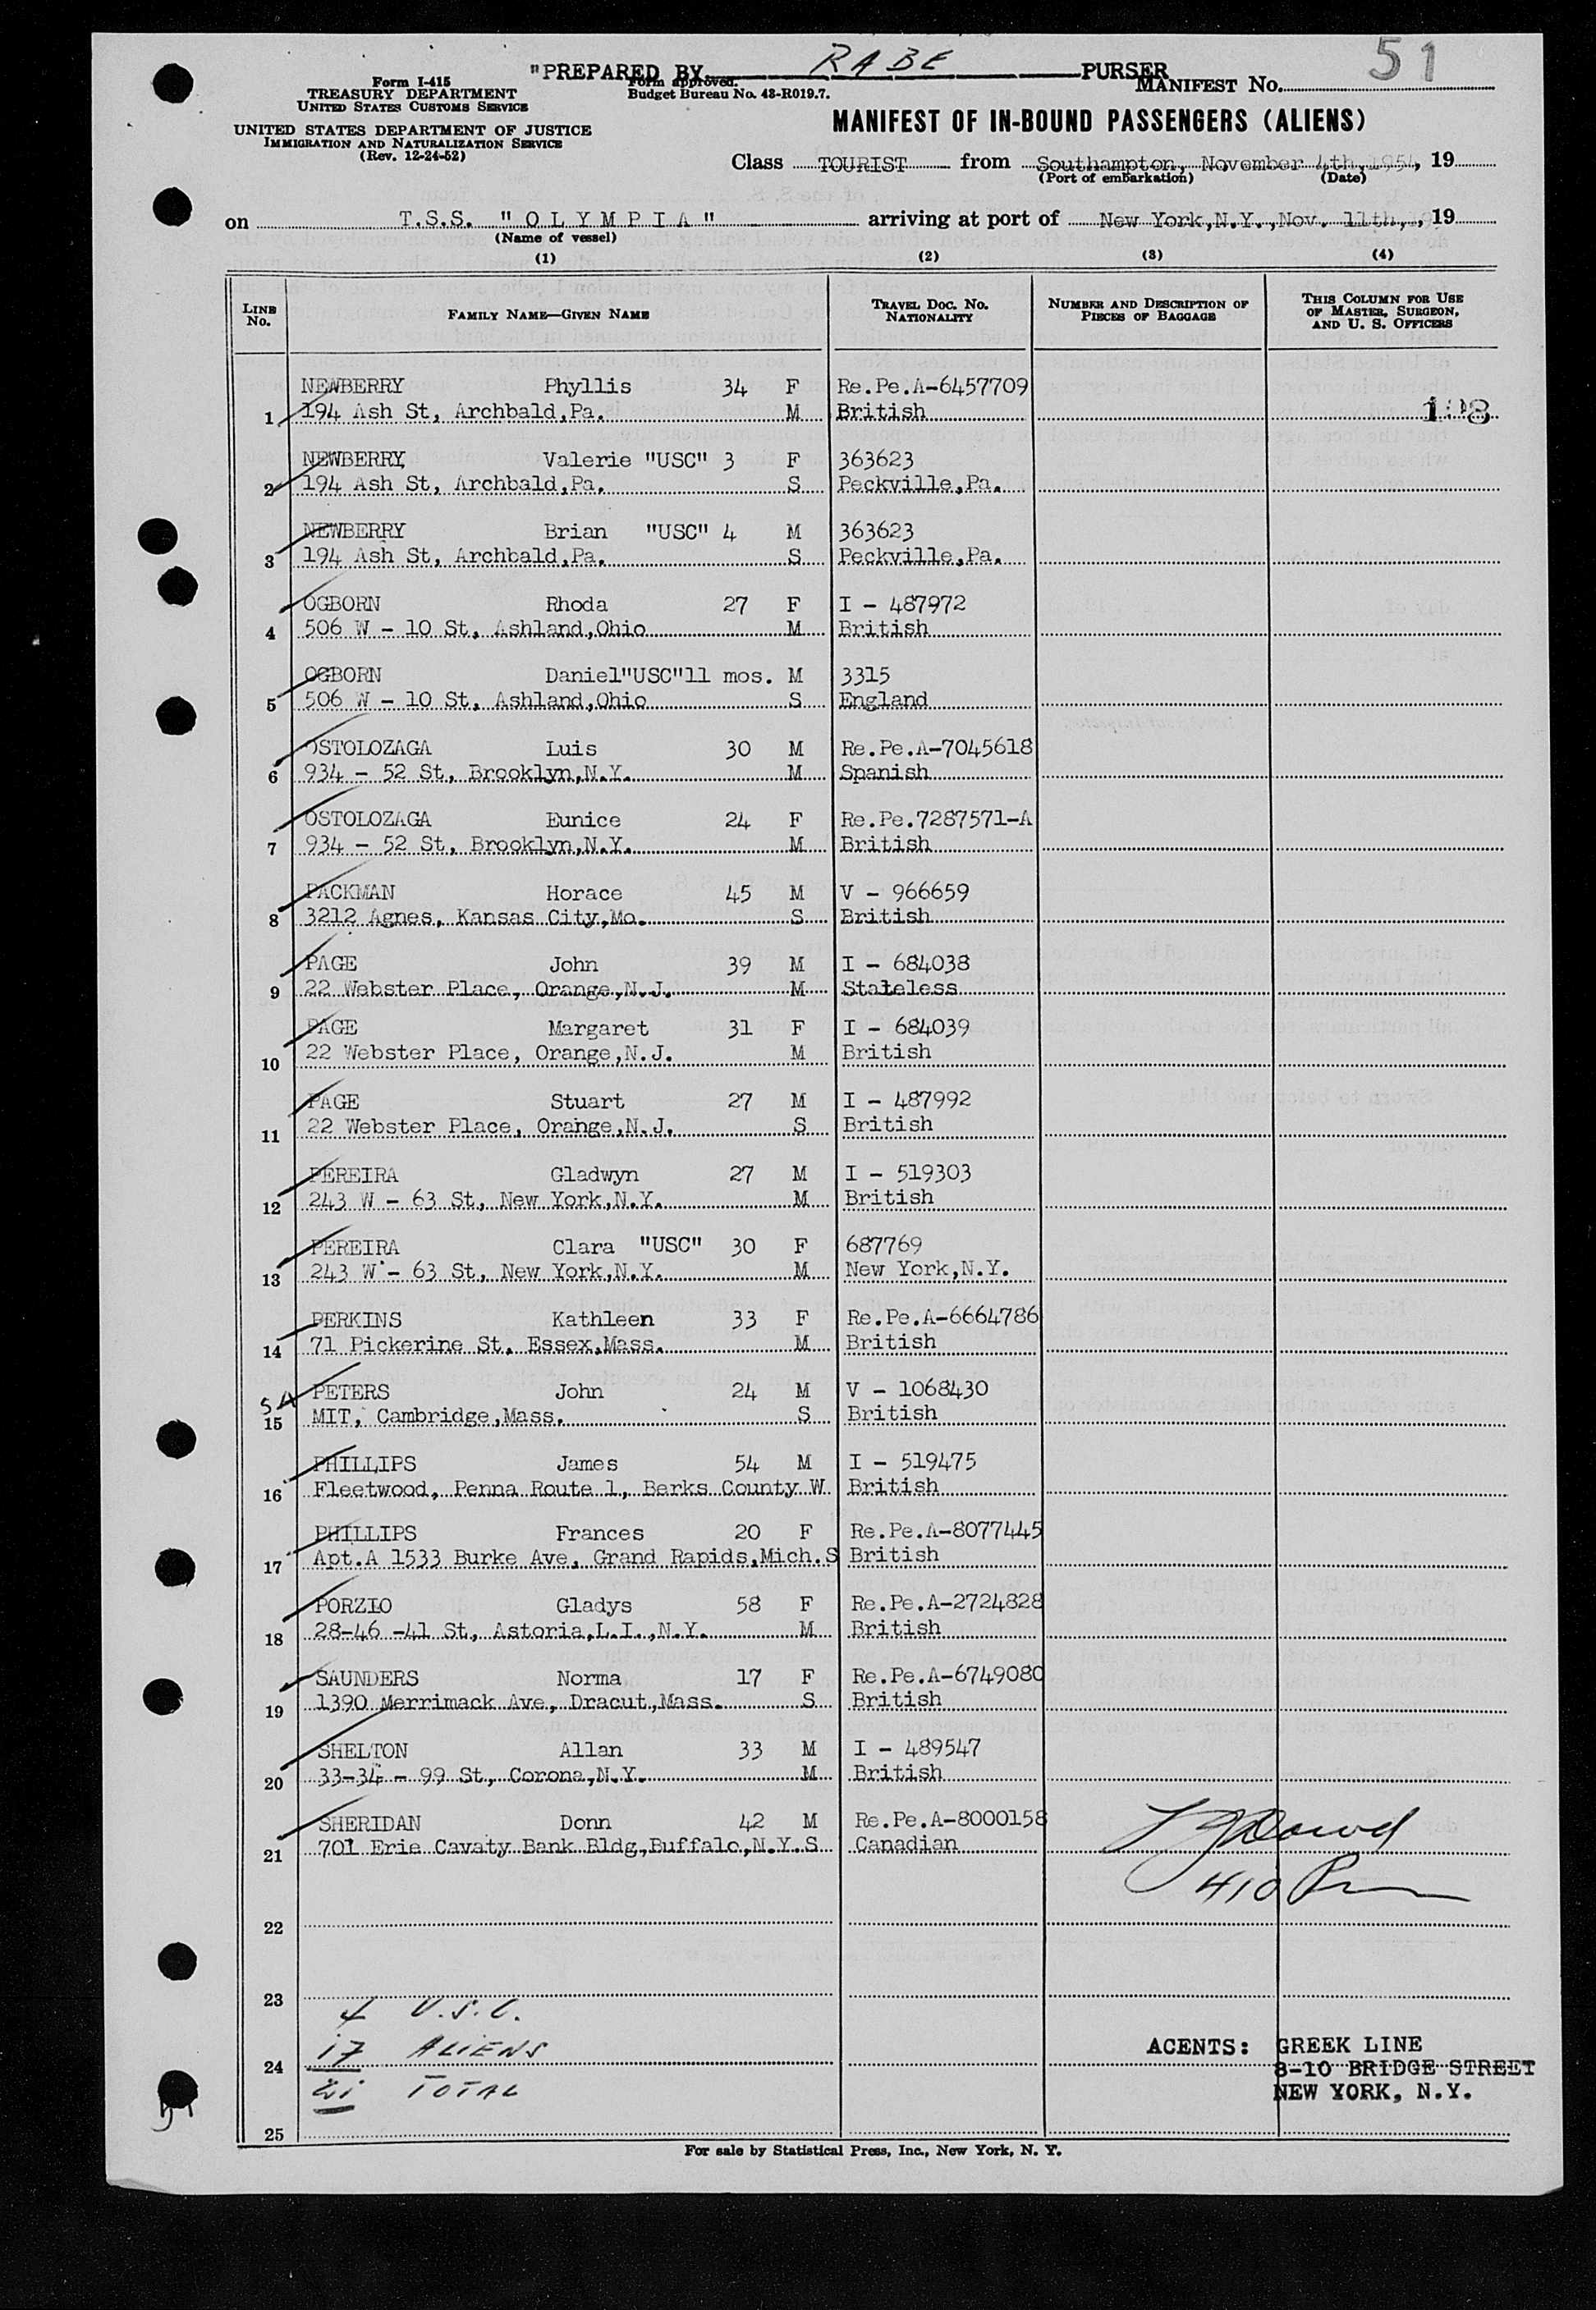 "PREPARED BY RABE PURSER
51
Form I-415
TREASURY DEPARTMENT
UNITED STATES CUSTOMS SERVICE
UNITED STATES DEPARTMENT OF JUSTICE
IMMIGRATION AND NATURALIZATION SERVICE
(Rev. 12-24-52)
Form approved.
Budget Bureau No. 43-R019.7.
MANIFEST NO.
MANIFEST OF IN-BOUND PASSENGERS (ALIENS)
Class TOURIST from Southampton, November 4th,1954, 19
(Port of embarkation) (Date)
on T.S.S. "OLYMPIA" arriving at port of New York,N.Y.,Nov. 11th, , 19
(Name of vessel)
(1) (2) (3) (4)
LINE NO. FAMILY NAME—GIVEN NAME TRAVEL DOC. NO. NATIONALITY NUMBER AND DESCRIPTION OF PIECES OF BAGGAGE THIS COLUMN FOR USE OF MASTER, SURGEON, AND U. S. OFFICERS
NEWBERRY Phyllis 34 F Re.Pe.A-6457709
1 194 Ash St, Archbald,Pa. M British
NEWBERRY Valerie "USC" 3 F 363623
2 194 Ash St, Archbald,Pa. S Peckville,Pa.
NEWBERRY Brian "USC" 4 M 363623
3 194 Ash St, Archbald,Pa. S Peckville,Pa.
OGBORN Rhoda 27 F I - 487972
4 506 W - 10 St, Ashland,Ohio M British
OGBORN Daniel"USC"11 mos. M 3315
5 506 W - 10 St, Ashland,Ohio S England
OSTOLOZAGA Luis 30 M Re.Pe.A-7045618
6 934 - 52 St, Brooklyn,N.Y. M Spanish
OSTOLOZAGA Eunice 24 F Re.Pe.7287571-A
7 934 - 52 St, Brooklyn,N.Y. M British
PACKMAN Horace 45 M V - 966659
8 3212 Agnes, Kansas City,Mo. S British
PAGE John 39 M I - 684038
9 22 Webster Place, Orange,N.J. M Stateless
PAGE Margaret 31 F I - 684039
10 22 Webster Place, Orange,N.J. M British
PAGE Stuart 27 M I - 487992
11 22 Webster Place, Orange,N.J. S British
PEREIRA Gladwyn 27 M I - 519303
12 243 W - 63 St, New York,N.Y. M British
PEREIRA Clara "USC" 30 F 687769
13 243 W - 63 St, New York,N.Y. M New York,N.Y.
PERKINS Kathleen 33 F Re.Pe.A-6664786
14 71 Pickerine St, Essex,Mass. M British
SA PETERS John 24 M V - 1068430
15 MIT, Cambridge,Mass. S British
PHILLIPS James 54 M I - 519475
16 Fleetwood, Penna Route 1, Berks County W British
PHILLIPS Frances 20 F Re.Pe.A-8077445
17 Apt.A 1533 Burke Ave, Grand Rapids,Mich.S British
PORZIO Gladys 58 F Re.Pe.A-2724828
18 28-46 -41 St, Astoria,L.I.,N.Y. M British
SAUNDERS Norma 17 F Re.Pe.A-6749080
19 1390 Merrimack Ave, Dracut,Mass. S British
SHELTON Allan 33 M I - 489547
20 33-34 - 99 St, Corona,N.Y. M British
SHERIDAN Donn 42 M Re.Pe.A-8000158
21 701 Erie Cavaty Bank Bldg,Buffalo,N.Y.S Canadian
410
22
23
4 U.S.C.
17 ALIENS
24
21 TOTAL
25
AGENTS: GREEK LINE
8-10 BRIDGE STREET
NEW YORK, N.Y.
For sale by Statistical Press, Inc., New York, N. Y.